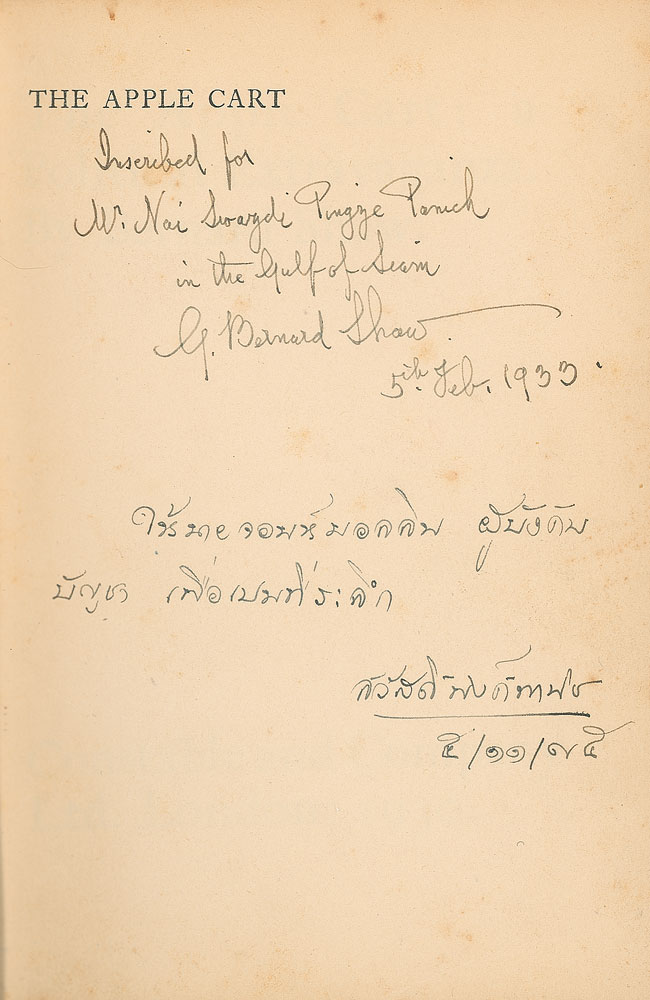 THE APPLE CART
Inscribed for
Mr. Nai Swazdi Pingye Panich
in the Gulf of Siam
G. Bernard Shaw
5th. Feb. 1933
ให้นาย จอนห์ มอลลิน ผู้บังคับ
บัญชา เพื่อเปนที่ระลึก
สวัสดิ์ พงค์พานิช
๕/๑๑/๗๕